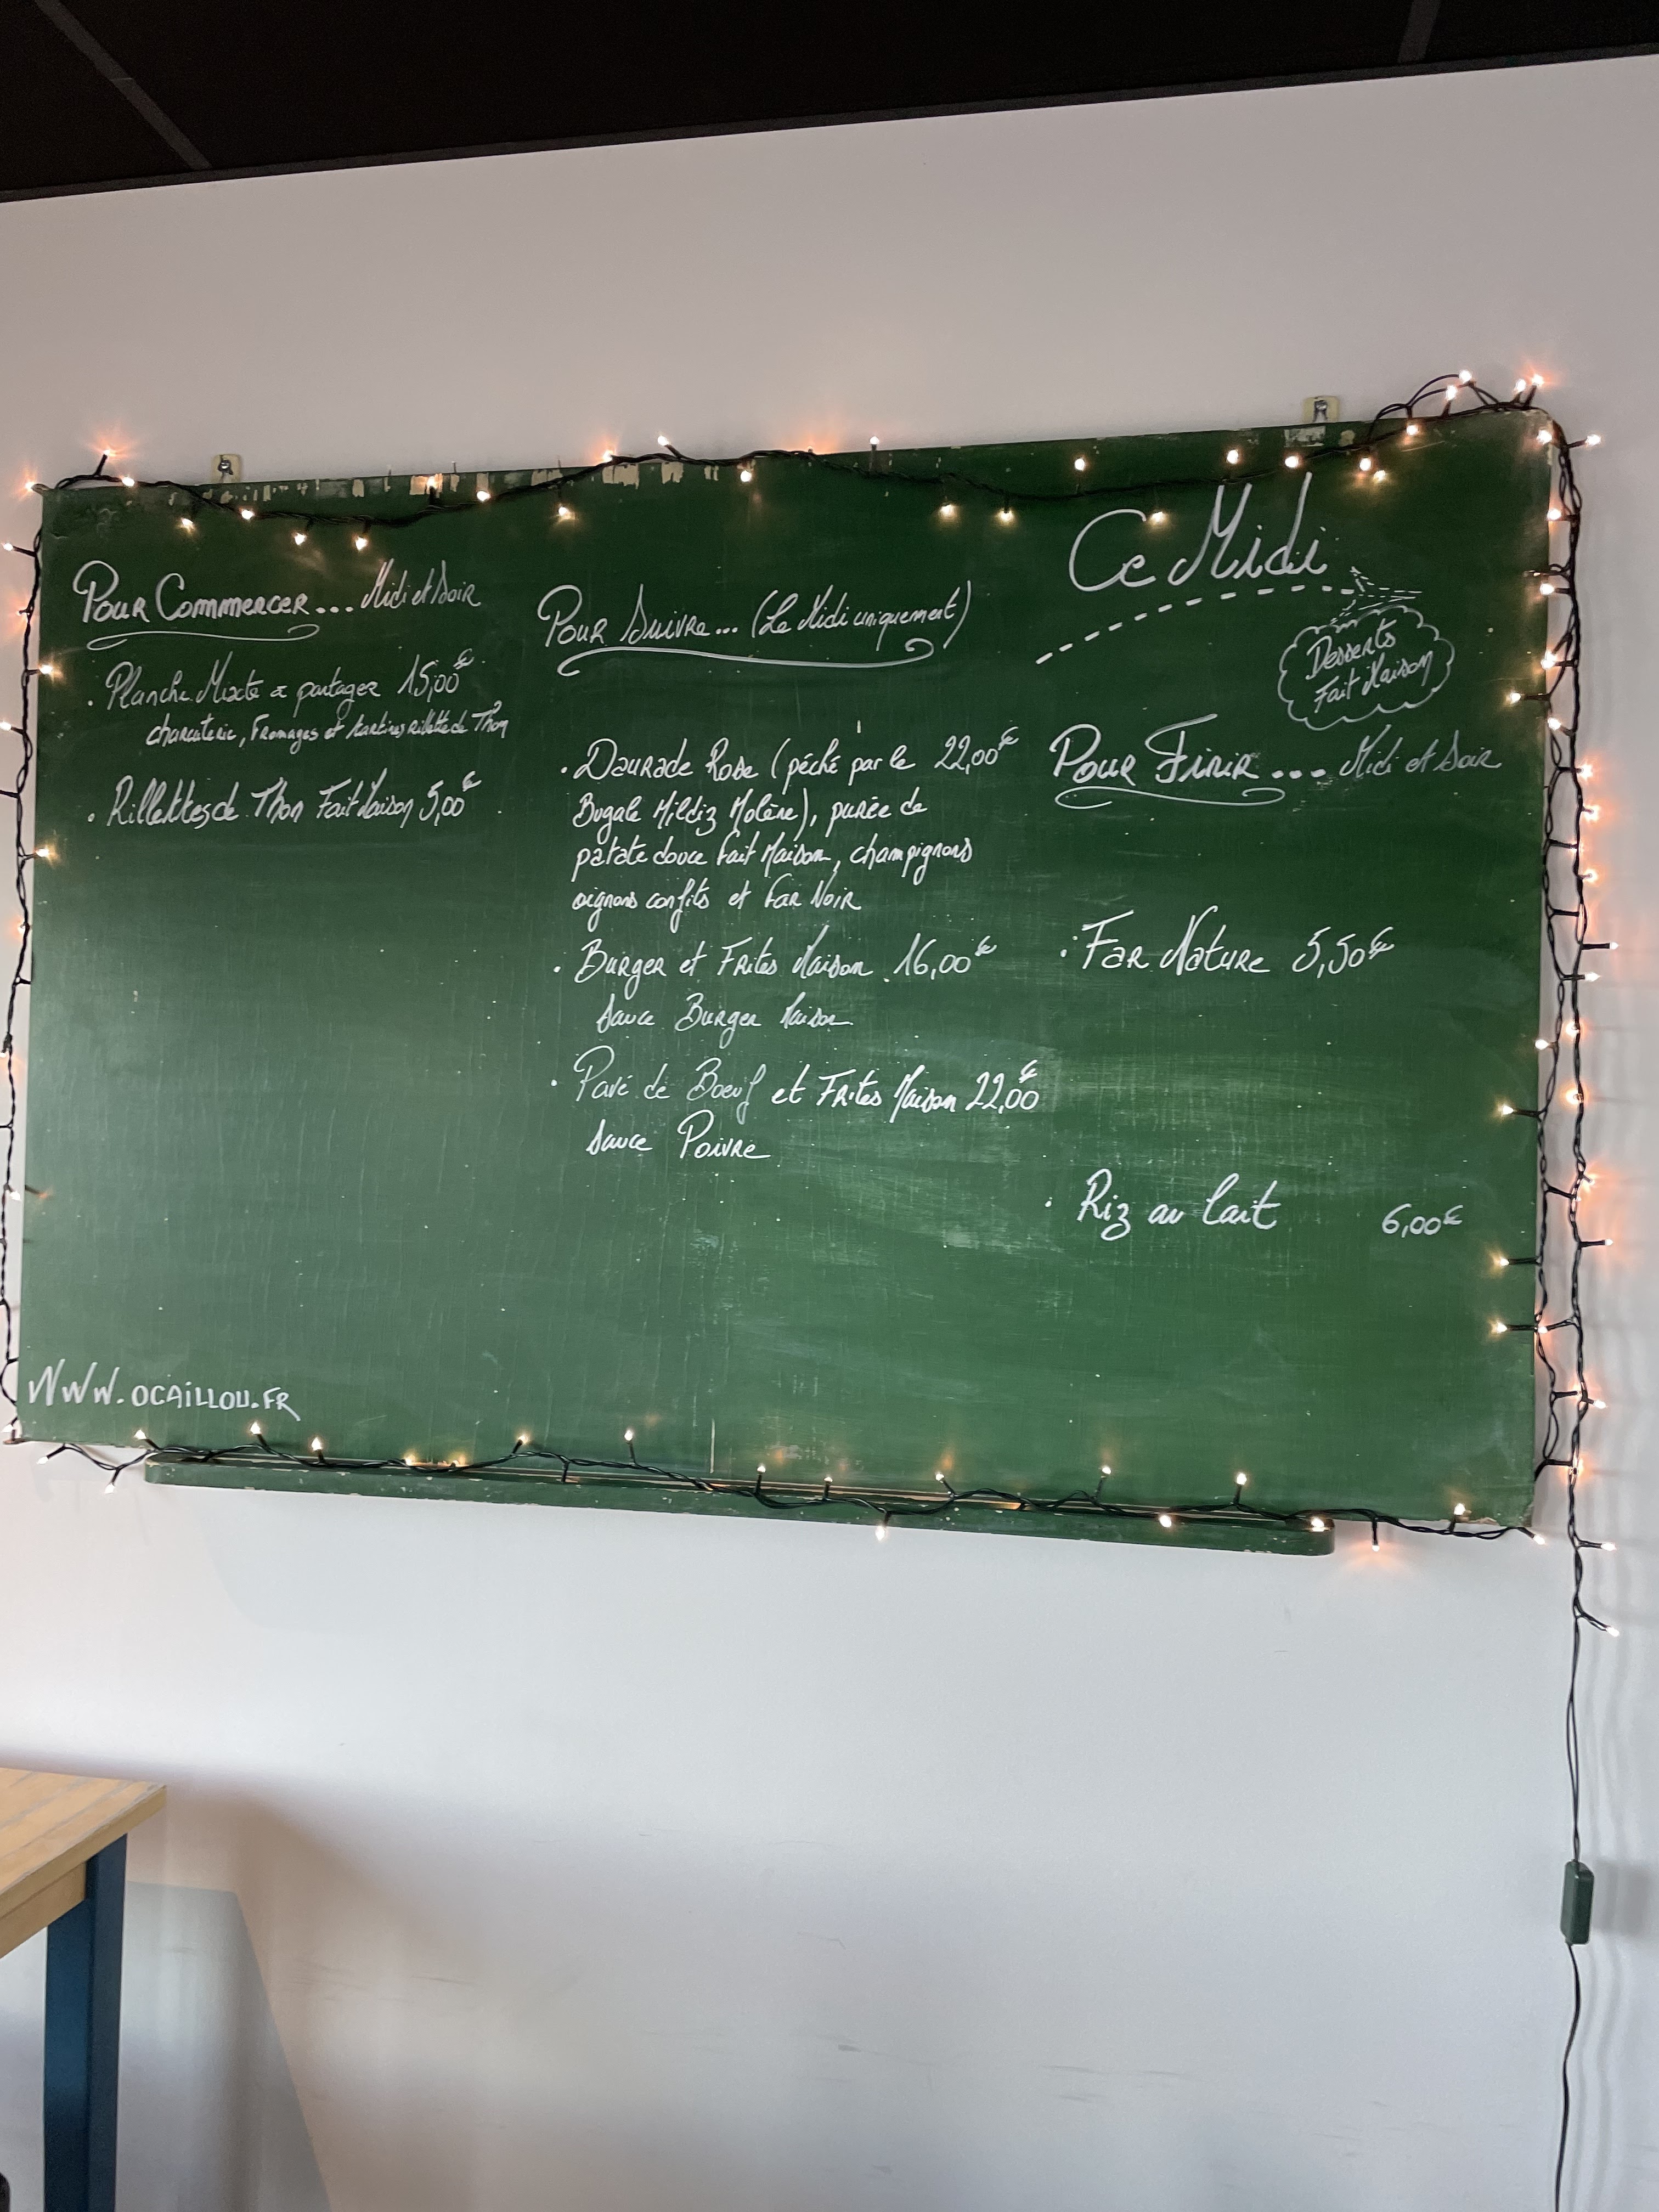 Ce Midi
Desserts
Fait Maison
Pour Commencer... Midi et Soir
. Planche Mixte a partager 15,00€
charcuterie, Fromages et tartines Rillette de Thon
. Rillettes de Thon Fait Maison 5,00€
Pour Suivre... (Le Midi uniquement)
. Daurade Rose (péché par le 22,00€
Bugale Mildiz Molène), purée de
patate douce Fait Maison, champignons
oignons confits et Far Noir
. Burger et Frites Maison 16,00€
Sauce Burger Maison
. Pavé de Boeuf et Frites Maison 22,00€
Sauce Poivre
Pour Finir... Midi et Soir
. Far Nature 5,50€
. Riz au lait 6,00€
WWW.OCAiLLOU.FR